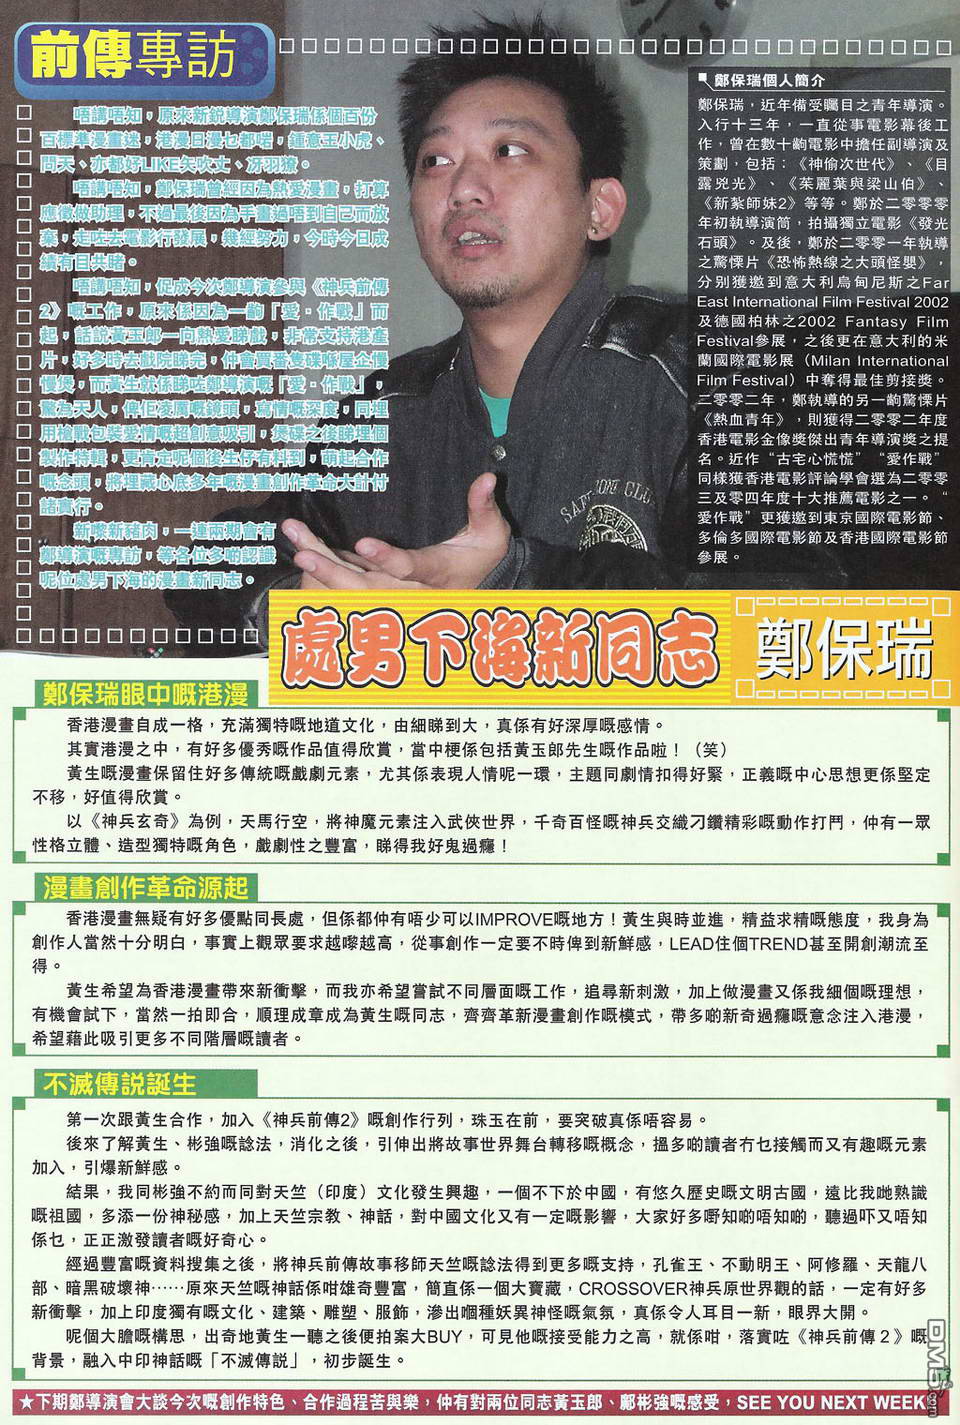 前傳專訪
唔講唔知，原來新銳導演鄭保瑞係個百份
百標準漫畫迷，港漫日漫乜都啱，鍾意王小虎、
問天、亦都好LIKE矢吹丈、冴羽獠。
唔講唔知，鄭保瑞曾經因為熱愛漫畫，打算
應徵做助理，不過最後因為手畫過唔到自己而放
棄，走咗去電影行發展，幾經努力，今時今日成
績有目共睹。
唔講唔知，促成今次鄭導演參與《神兵前傳
2》嘅工作，原來係因為一齣「愛．作戰」而
起，話說黃玉郎一向熱愛睇戲，非常支持港產
片，好多時去戲院睇完，仲會買番隻碟喺屋企慢
慢煲，而黃生就係睇咗鄭導演嘅「愛．作戰」，
驚為天人，俾佢凌厲嘅鏡頭，寫情嘅深度，同埋
用槍戰包裝愛情嘅超創意吸引，煲碟之後睇埋個
製作特輯，更肯定呢個後生仔有料到，萌起合作
嘅念頭，將埋藏心底多年嘅漫畫創作革命大計付
諸實行。
新嚟新豬肉，一連兩期會有
鄭導演嘅專訪，等各位多啲認識
呢位處男下海的漫畫新同志。
■鄭保瑞個人簡介
鄭保瑞，近年備受矚目之青年導演。
入行十三年，一直從事電影幕後工
作，曾在數十齣電影中擔任副導演及
策劃，包括：《神偷次世代》、《目
露兇光》、《茱麗葉與梁山伯》、
《新紮師妹2》等等。鄭於二零零零
年初執導演筒，拍攝獨立電影《發光
石頭》。及後，鄭於二零零一年執導
之驚慄片《恐怖熱線之大頭怪嬰》，
分別獲邀到意大利烏甸尼斯之Far
East International Film Festival 2002
及德國柏林之2002 Fantasy Film
Festival參展，之後更在意大利的米
蘭國際電影展（Milan International
Film Festival）中奪得最佳剪接獎。
二零零二年，鄭執導的另一齣驚慄片
《熱血青年》，則獲得二零零二年度
香港電影金像獎傑出青年導演獎之提
名。近作“古宅心慌慌”“愛作戰”
同樣獲香港電影評論學會選為二零零
三及零四年度十大推薦電影之一。“
愛作戰”更獲邀到東京國際電影節、
多倫多國際電影節及香港國際電影節
參展。
處男下海新同志
鄭保瑞
鄭保瑞眼中嘅港漫
香港漫畫自成一格，充滿獨特嘅地道文化，由細睇到大，真係有好深厚嘅感情。
其實港漫之中，有好多優秀嘅作品值得欣賞，當中梗係包括黃玉郎先生嘅作品啦！（笑）
黃生嘅漫畫保留住好多傳統嘅戲劇元素，尤其係表現人情呢一環，主題同劇情扣得好緊，正義嘅中心思想更係堅定
不移，好值得欣賞。
以《神兵玄奇》為例，天馬行空，將神魔元素注入武俠世界，千奇百怪嘅神兵交織刁鑽精彩嘅動作打鬥，仲有一眾
性格立體、造型獨特嘅角色，戲劇性之豐富，睇得我好鬼過癮！
漫畫創作革命源起
香港漫畫無疑有好多優點同長處，但係都仲有唔少可以IMPROVE嘅地方！黃生與時並進，精益求精嘅態度，我身為
創作人當然十分明白，事實上觀眾要求越嚟越高，從事創作一定要不時俾到新鮮感，LEAD住個TREND甚至開創潮流至
得。
黃生希望為香港漫畫帶來新衝擊，而我亦希望嘗試不同層面嘅工作，追尋新刺激，加上做漫畫又係我細個嘅理想，
有機會試下，當然一拍即合，順理成章成為黃生嘅同志，齊齊革新漫畫創作嘅模式，帶多啲新奇過癮嘅意念注入港漫，
希望藉此吸引更多不同階層嘅讀者。
不滅傳説誕生
第一次跟黃生合作，加入《神兵前傳2》嘅創作行列，珠玉在前，要突破真係唔容易。
後來了解黃生、彬強嘅諗法，消化之後，引伸出將故事世界舞台轉移嘅概念，搵多啲讀者冇乜接觸而又有趣嘅元素
加入，引爆新鮮感。
結果，我同彬強不約而同對天竺（印度）文化發生興趣，一個不下於中國，有悠久歷史嘅文明古國，遠比我哋熟識
嘅祖國，多添一份神秘感，加上天竺宗教、神話，對中國文化又有一定嘅影響，大家好多嘢知啲唔知啲，聽過吓又唔知
係乜，正正激發讀者嘅好奇心。
經過豐富嘅資料搜集之後，將神兵前傳故事移師天竺嘅諗法得到更多嘅支持，孔雀王、不動明王、阿修羅、天龍八
部、暗黑破壞神……原來天竺嘅神話係咁雄奇豐富，簡直係一個大寶藏，CROSSOVER神兵原世界觀的話，一定有好多
新衝擊，加上印度獨有嘅文化、建築、雕塑、服飾，滲出嗰種妖異神怪嘅氣氛，真係令人耳目一新，眼界大開。
呢個大膽嘅構思，出奇地黃生一聽之後便拍案大BUY，可見他嘅接受能力之高，就係咁，落實咗《神兵前傳２》嘅
背景，融入中印神話嘅「不滅傳説」，初步誕生。
★下期鄭導演會大談今次嘅創作特色、合作過程苦與樂，仲有對兩位同志黃玉郎、鄺彬強嘅感受，SEE YOU NEXT WEEK!
DM5.com